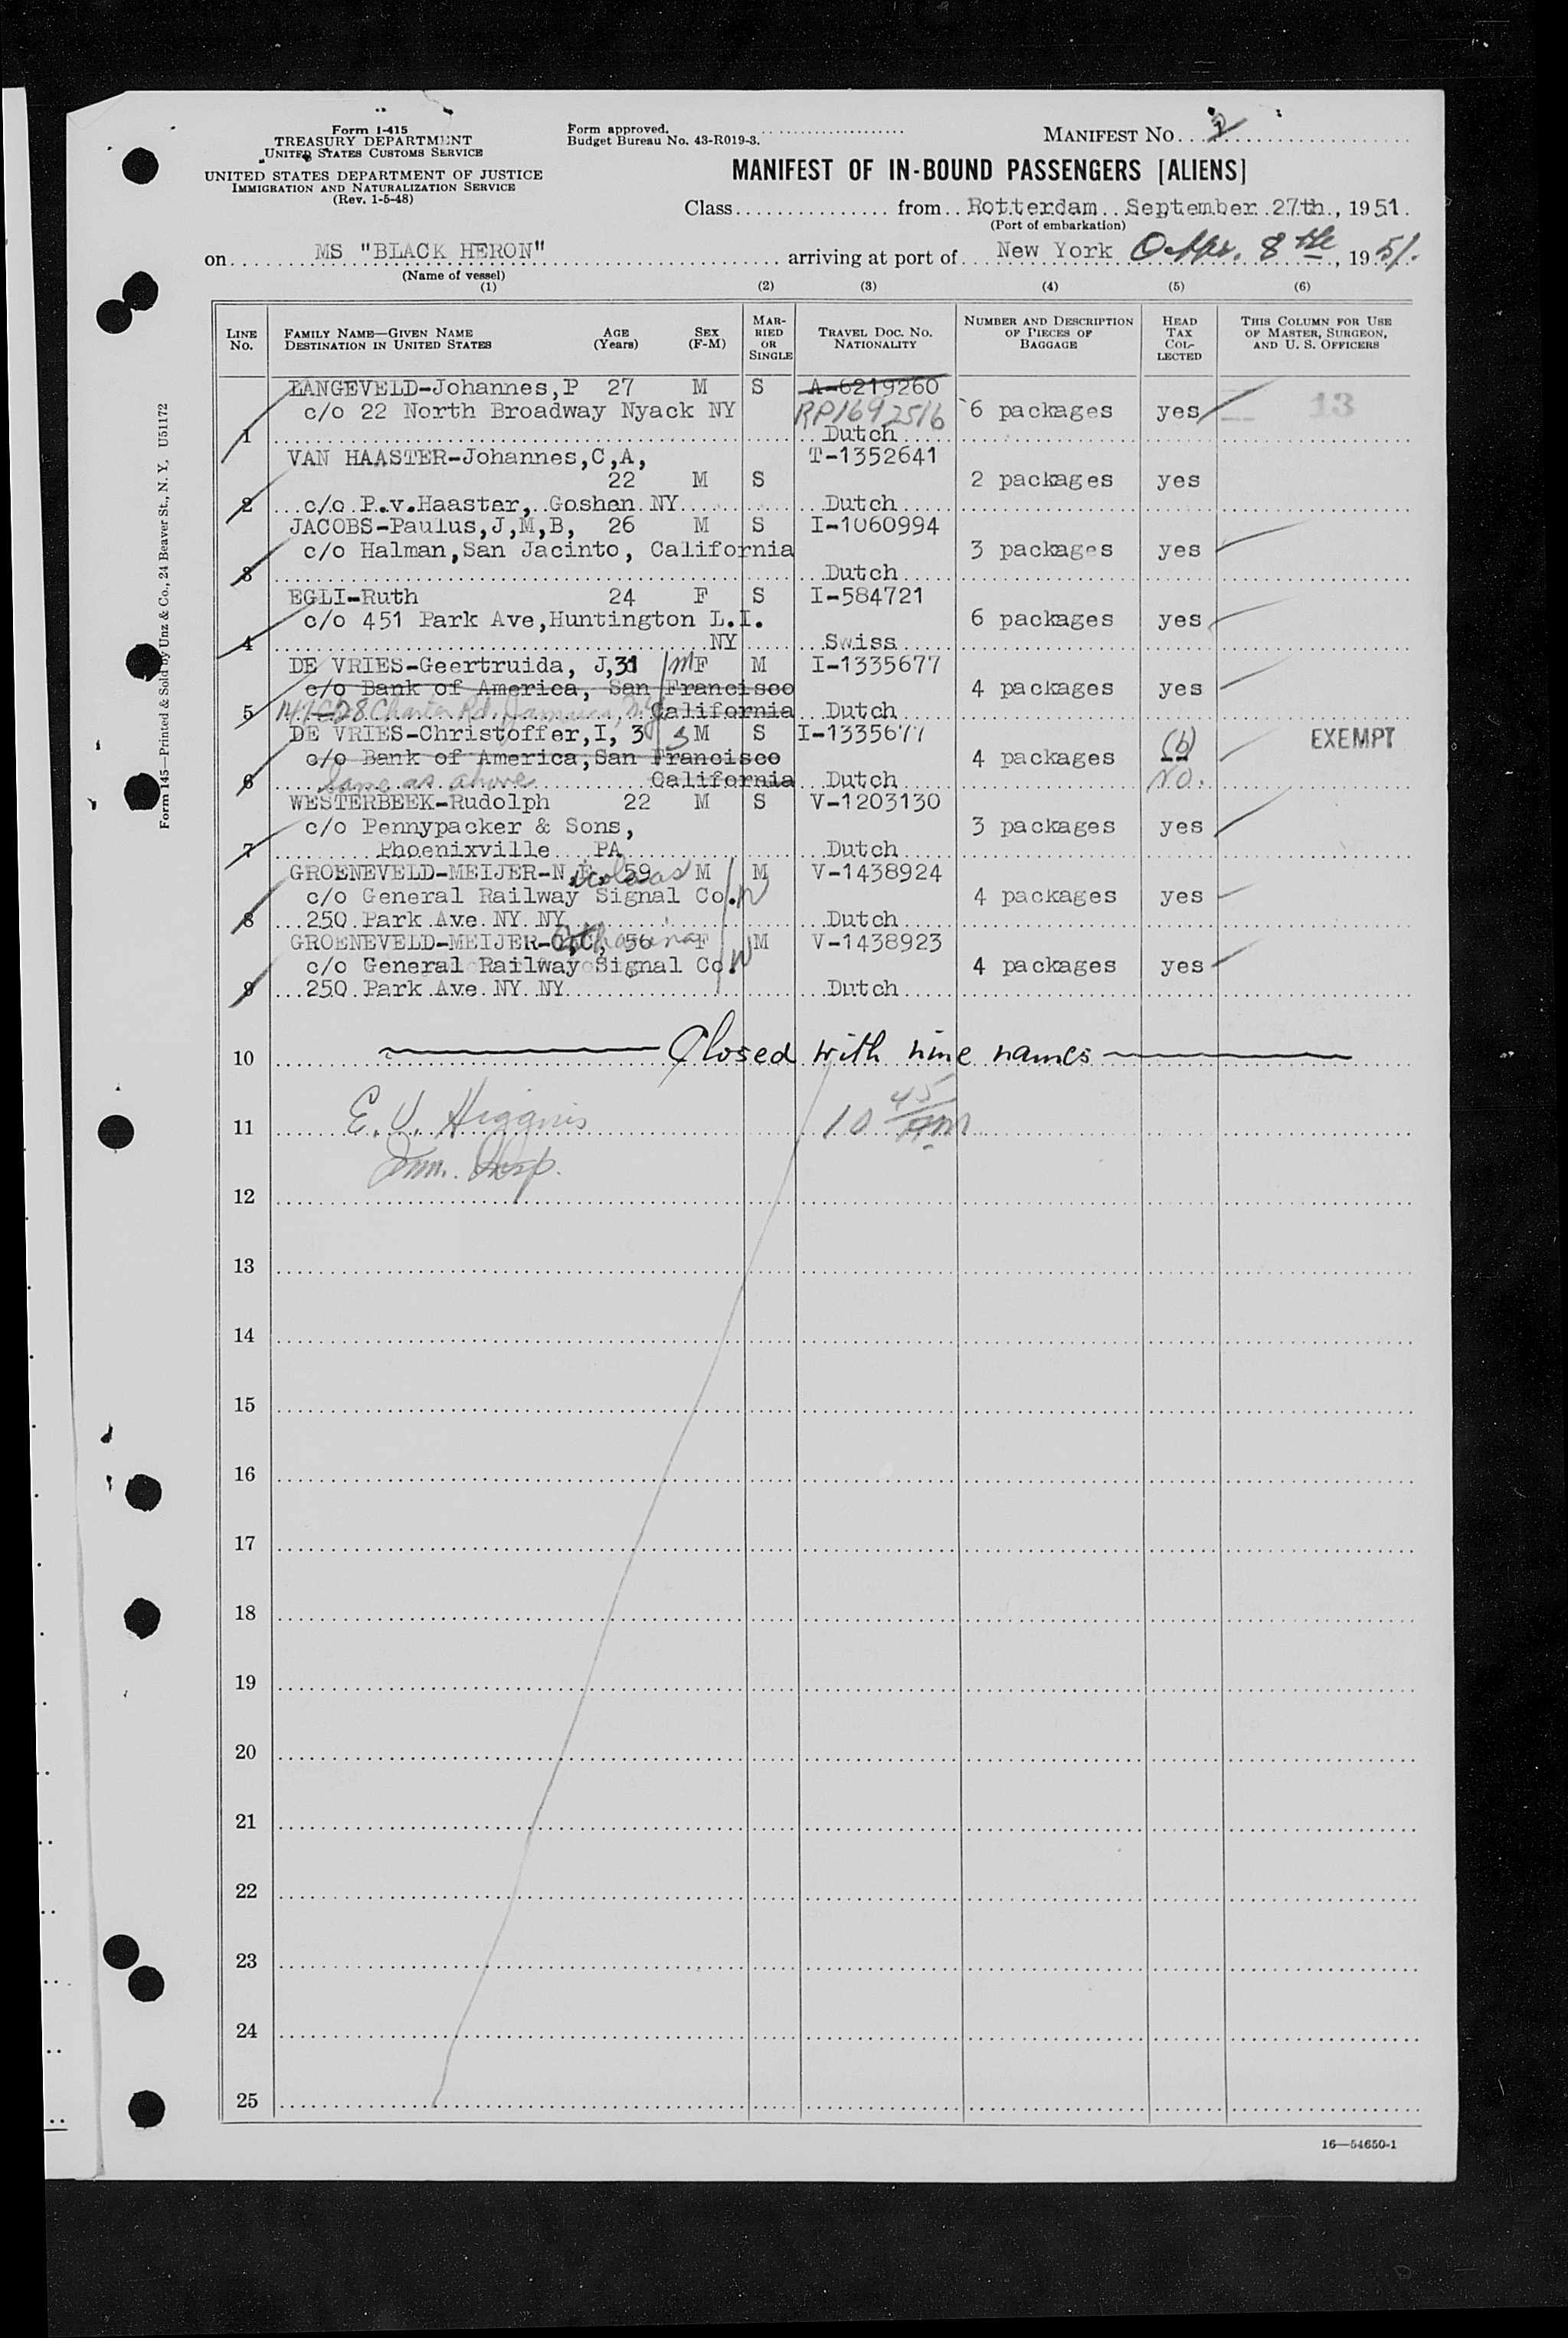 Form I-415
TREASURY DEPARTMENT
UNITED STATES CUSTOMS SERVICE
UNITED STATES DEPARTMENT OF JUSTICE
IMMIGRATION AND NATURALIZATION SERVICE
(Rev. 1-5-48)
Form approved.
Budget Bureau No. 43-R019-3.
MANIFEST NO. 2
MANIFEST OF IN-BOUND PASSENGERS [ALIENS]
Class from Rotterdam September 27th, 1951.
(Port of embarkation)
on MS "BLACK HERON" arriving at port of New York 8th, 1951.
(Name of vessel)
(1) (2) (3) (4) (5) (6)
LINE NO. FAMILY NAME—GIVEN NAME DESTINATION IN UNITED STATES AGE (Years) SEX (F-M) MARRIED OR SINGLE TRAVEL DOC. NO. NATIONALITY NUMBER AND DESCRIPTION OF PIECES OF BAGGAGE HEAD TAX COLLECTED THIS COLUMN FOR USE OF MASTER, SURGEON, AND U. S. OFFICERS
LANGEVELD-Johannes,P 27 M S A-6219260
c/o 22 North Broadway Nyack NY RP1692516 6 packages yes 13
1 Dutch
VAN HAASTER-Johannes,C,A, T-1352641
22 M S 2 packages yes
2 c/o P.v.Haaster, Goshen NY Dutch
JACOBS-Paulus,J,M,B, 26 M S I-1060994
c/o Halman,San Jacinto, California 3 packages yes
3 Dutch
EGLI-Ruth 24 F S I-584721
c/o 451 Park Ave,Huntington L.I. 6 packages yes
4 NY Swiss
DE VRIES-Geertruida, J,31 M F M I-1335677
c/o Bank of America, San Francisco 4 packages yes
5 Charter Rd. Jamaica, N.Y. California Dutch
DE VRIES-Christoffer,I, 3 3 M S I-1335677 (b) EXEMPT
c/o Bank of America,San Francisco 4 packages
6 Same as above California Dutch No.
WESTERBEEK-Rudolph 22 M S V-1203130
c/o Pennypacker & Sons, 3 packages yes
7 Phoenixville PA Dutch
GROENEVELD-MEIJER-N icolaas 59 M M V-1438924
c/o General Railway Signal Co. N 4 packages yes
8 250 Park Ave NY NY Dutch
GROENEVELD-MEIJER-Catharina 56 F M V-1438923
c/o General Railway Signal Co. N 4 packages yes
9 250 Park Ave NY NY Dutch
10 Closed with nine names
11 E. V. Higgins 10 45 AM
Imm. Insp.
12
13
14
15
16
17
18
19
20
21
22
23
24
25
16—54650-1
Form 145—Printed & Sold by Unz & Co., 24 Beaver St., N. Y. U51172